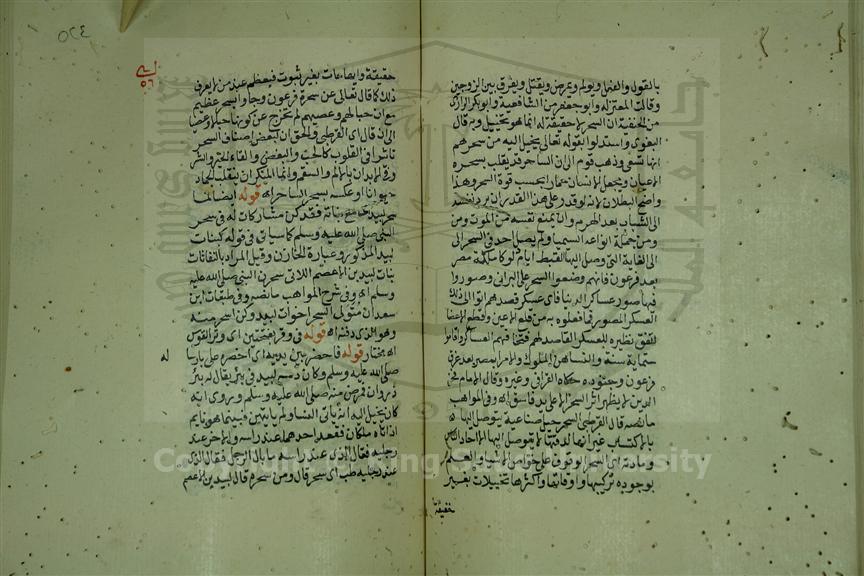 بالقول والفعل ويولم ويمرض ويقتل ويفرق بين الزوجين
وقالت المعتزلة وابو جعفر من الشافعية وابو بكر الرازى
من الحنفية ان السحر لا حقيقة له انما هو تخييل وبه قال
البغوى واستدلوا بقوله تعالى يخيل اليه من سحرهم
انها تسعى وذهب قوم الى ان الساحر قد يقلب بسحره
الاعيان ويجعل الانسان حمارا بحسب قوة السحر وهذا
واضح البطلان لانه لو قدر على هذا القدر ان يرد نفسه
الى الشباب بعد الهرم وان يمنع نفسه من الموت ومن
ومن جملة انواعه السيميا ولم يصل احد فى السحر الى
الى الغاية التى وصل اليها القبط ايام دلوكا ملكة مصر
بعد فرعون فانهم وضعوا السحر على البرابى وصوروا
فيها صور عساكر الدنيا فاى عسكر قصدهم اتوا الى ذلك
العسكر المصور فما فعلوه به من قلع الاعين وقطع الاعضا
اتفق نظيره للعسكر القاصد لهم فتخافهم العساكر واقاموا
ستماية سنة والنساء هن الملوك والامراء بمصر بعد غرق
فرعون وجنوده حكاه القرافى وغيره وقال الامام فخر
الدين لا يظهر اثر السحر الا على يد فاسق اه وفى المواهب
ما نصه قال القرطبى السحر حيل صناعية يتوصل اليها
بالاكتساب غير انها لدقتها لا يتوصل اليها الا احاد الناس
ومادته اى السحر الوقوف على خواص الاشيا والعلم
بوجوه تركيبها واوقاتها واكثرها تخييلات بغير
حقيقة
٥٢٤
حقيقة وايهامات بغير ثبوت فيعظم عند من لا يعرف
ذلك كما قال تعالى عن سحرة فرعون وجاؤا بسحر عظيم
مع ان حبالهم وعصيهم لم تخرج عن كونها حبالا وعصيا
الى ان قال اى القرطبى والحق ان لبعض اصناف السحر
تاثيرا فى القلوب كالحب والبغض والقاء الخير والشر
وفى الابدان بالالم والسقم وانما المنكر ان ينقلب الجماد
حيوانا او عكسه بسحر الساحر اه قوله ايضا لما
سحر لبيد مع بناته فقد كن مشاركات له فى سحر
النبى صلى الله عليه وسلم كما سياتى فى قوله كبنات
لبيد المذكور وعبارة الخازن وقيل المراد بالنفاثات
بنات لبيد بن الاعصم اللاتى سحرن النبى صلى الله عليه
وسلم اه وفى شرح المواهب ما نصه وفى طبقات ابن
سعد ان متولى السحر اخوات لبيد وكن اسحر منه
وهو الذى دفنه اه قوله فى وتر بفتحتين اى وتر القوس
اه مختار قوله فاحضر بين يديه اى احضره على
صلى الله عليه وسلم وكان دسه لبيد فى بئر يقال له بئر
ذروان فمرض منه صلى الله عليه وسلم وروى انه
كان يخيل اليه انه ياتى النسا ولم ياتهن فبينما هو نايم
اذ اتاه ملكان فقعد احدهما عند راسه والاخر عند
رجليه فقال الذى عند راسه ما بال الرجل فقال الذى
عند رجليه طب اى سحر قال ومن سحره قال لبيد بن الاعصم
Copyright © King Saud University
جامعة الملك سعود